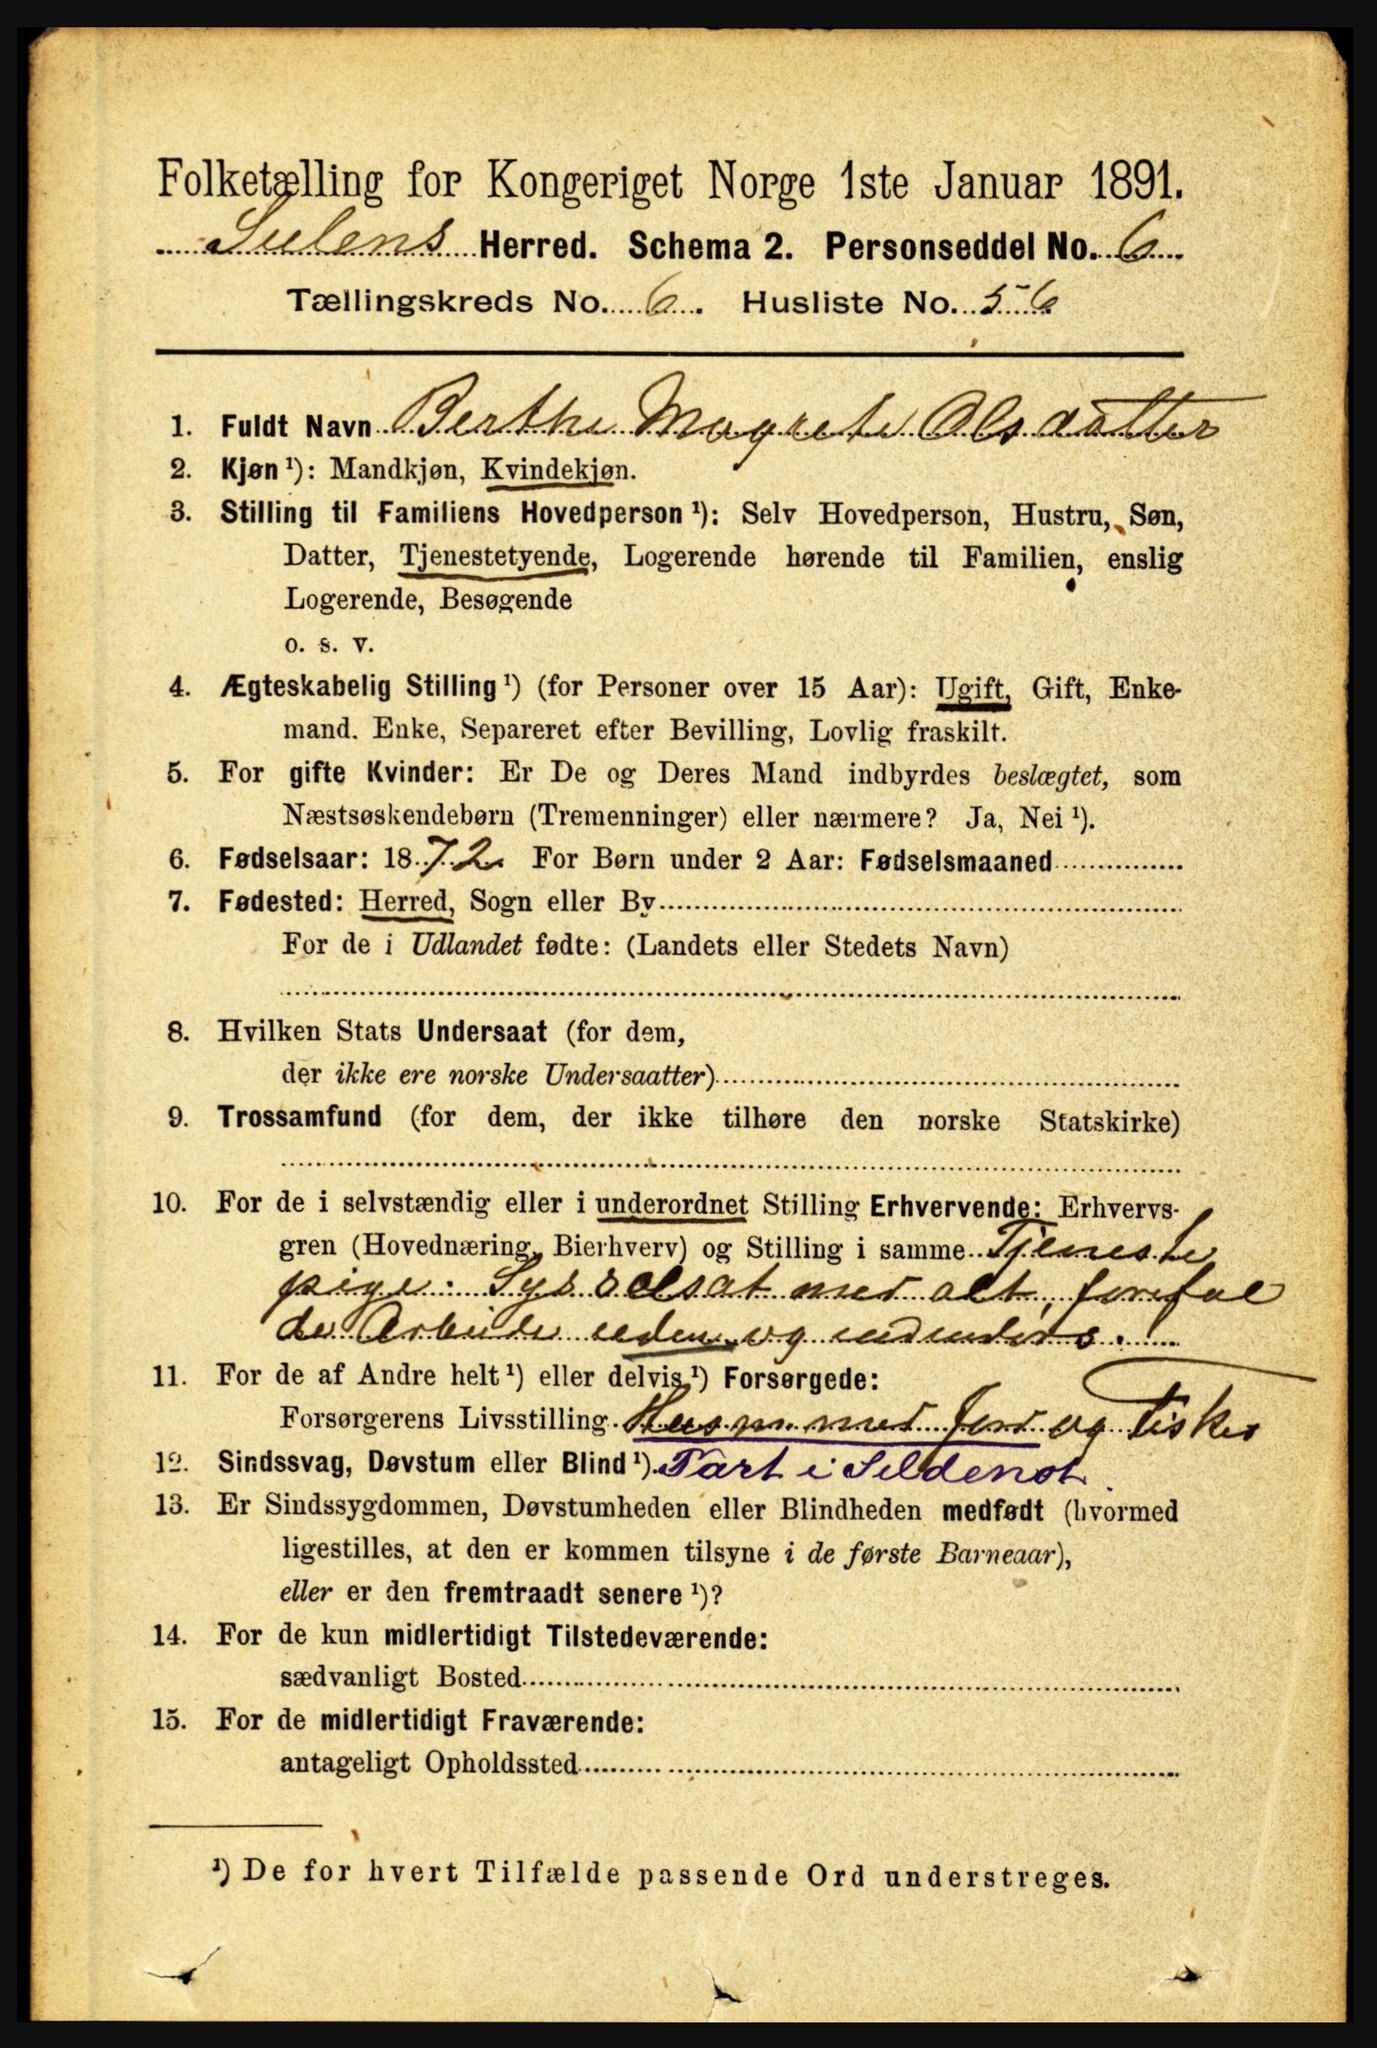 Folketælling for Kongeriget Norge 1ste Januar 1891.
Sulens Herred. Schema 2. Personseddel No. 6
Tællingskreds No. 6. Husliste No. 56
1. Fuldt Navn Berthe Magrete Olsdatter
2. Kjøn ¹): Mandkjøn, Kvindekjøn.
3. Stilling til Familiens Hovedperson ¹): Selv Hovedperson, Hustru, Søn,
Datter, Tjenestetyende, Logerende hørende til Familien, enslig
Logerende, Besøgende
o. s. v.
4. Ægteskabelig Stilling ¹) (for Personer over 15 Aar): Ugift, Gift, Enke-
mand. Enke, Separeret efter Bevilling, Lovlig fraskilt.
5. For gifte Kvinder: Er De og Deres Mand indbyrdes beslægtet, som
Næstsøskendebørn (Tremenninger) eller nærmere? Ja, Nei ¹).
6. Fødselsaar: 1872. For Børn under 2 Aar: Fødselsmaaned
7. Fødested: Herred, Sogn eller By
For de i Udlandet fødte: (Landets eller Stedets Navn)
8. Hvilken Stats Undersaat (for dem,
der ikke ere norske Undersaatter)
9. Trossamfund (for dem, der ikke tilhøre den norske Statskirke)
10. For de i selvstændig eller i underordnet Stilling Erhvervende: Erhvervs-
gren (Hovednæring, Bierhverv) og Stilling i samme Tjeneste
pige. Sysselsat med alt, forefal
de Arbeide uden og indendørs.
11. For de af Andre helt ¹) eller delvis ¹) Forsørgede:
Forsørgerens Livsstilling Husm. med Jord og Fisker
12. Sindssvag, Døvstum eller Blind ¹). Part i Sildenot.
13. Er Sindssygdommen, Døvstumheden eller Blindheden medfødt (hvormed
ligestilles, at den er kommen tilsyne i de første Barneaar),
eller er den fremtraadt senere ¹)?
14. For de kun midlertidigt Tilstedeværende:
sædvanligt Bosted
15. For de midlertidigt Fraværende:
antageligt Opholdssted
¹) De for hvert Tilfælde passende Ord understreges.